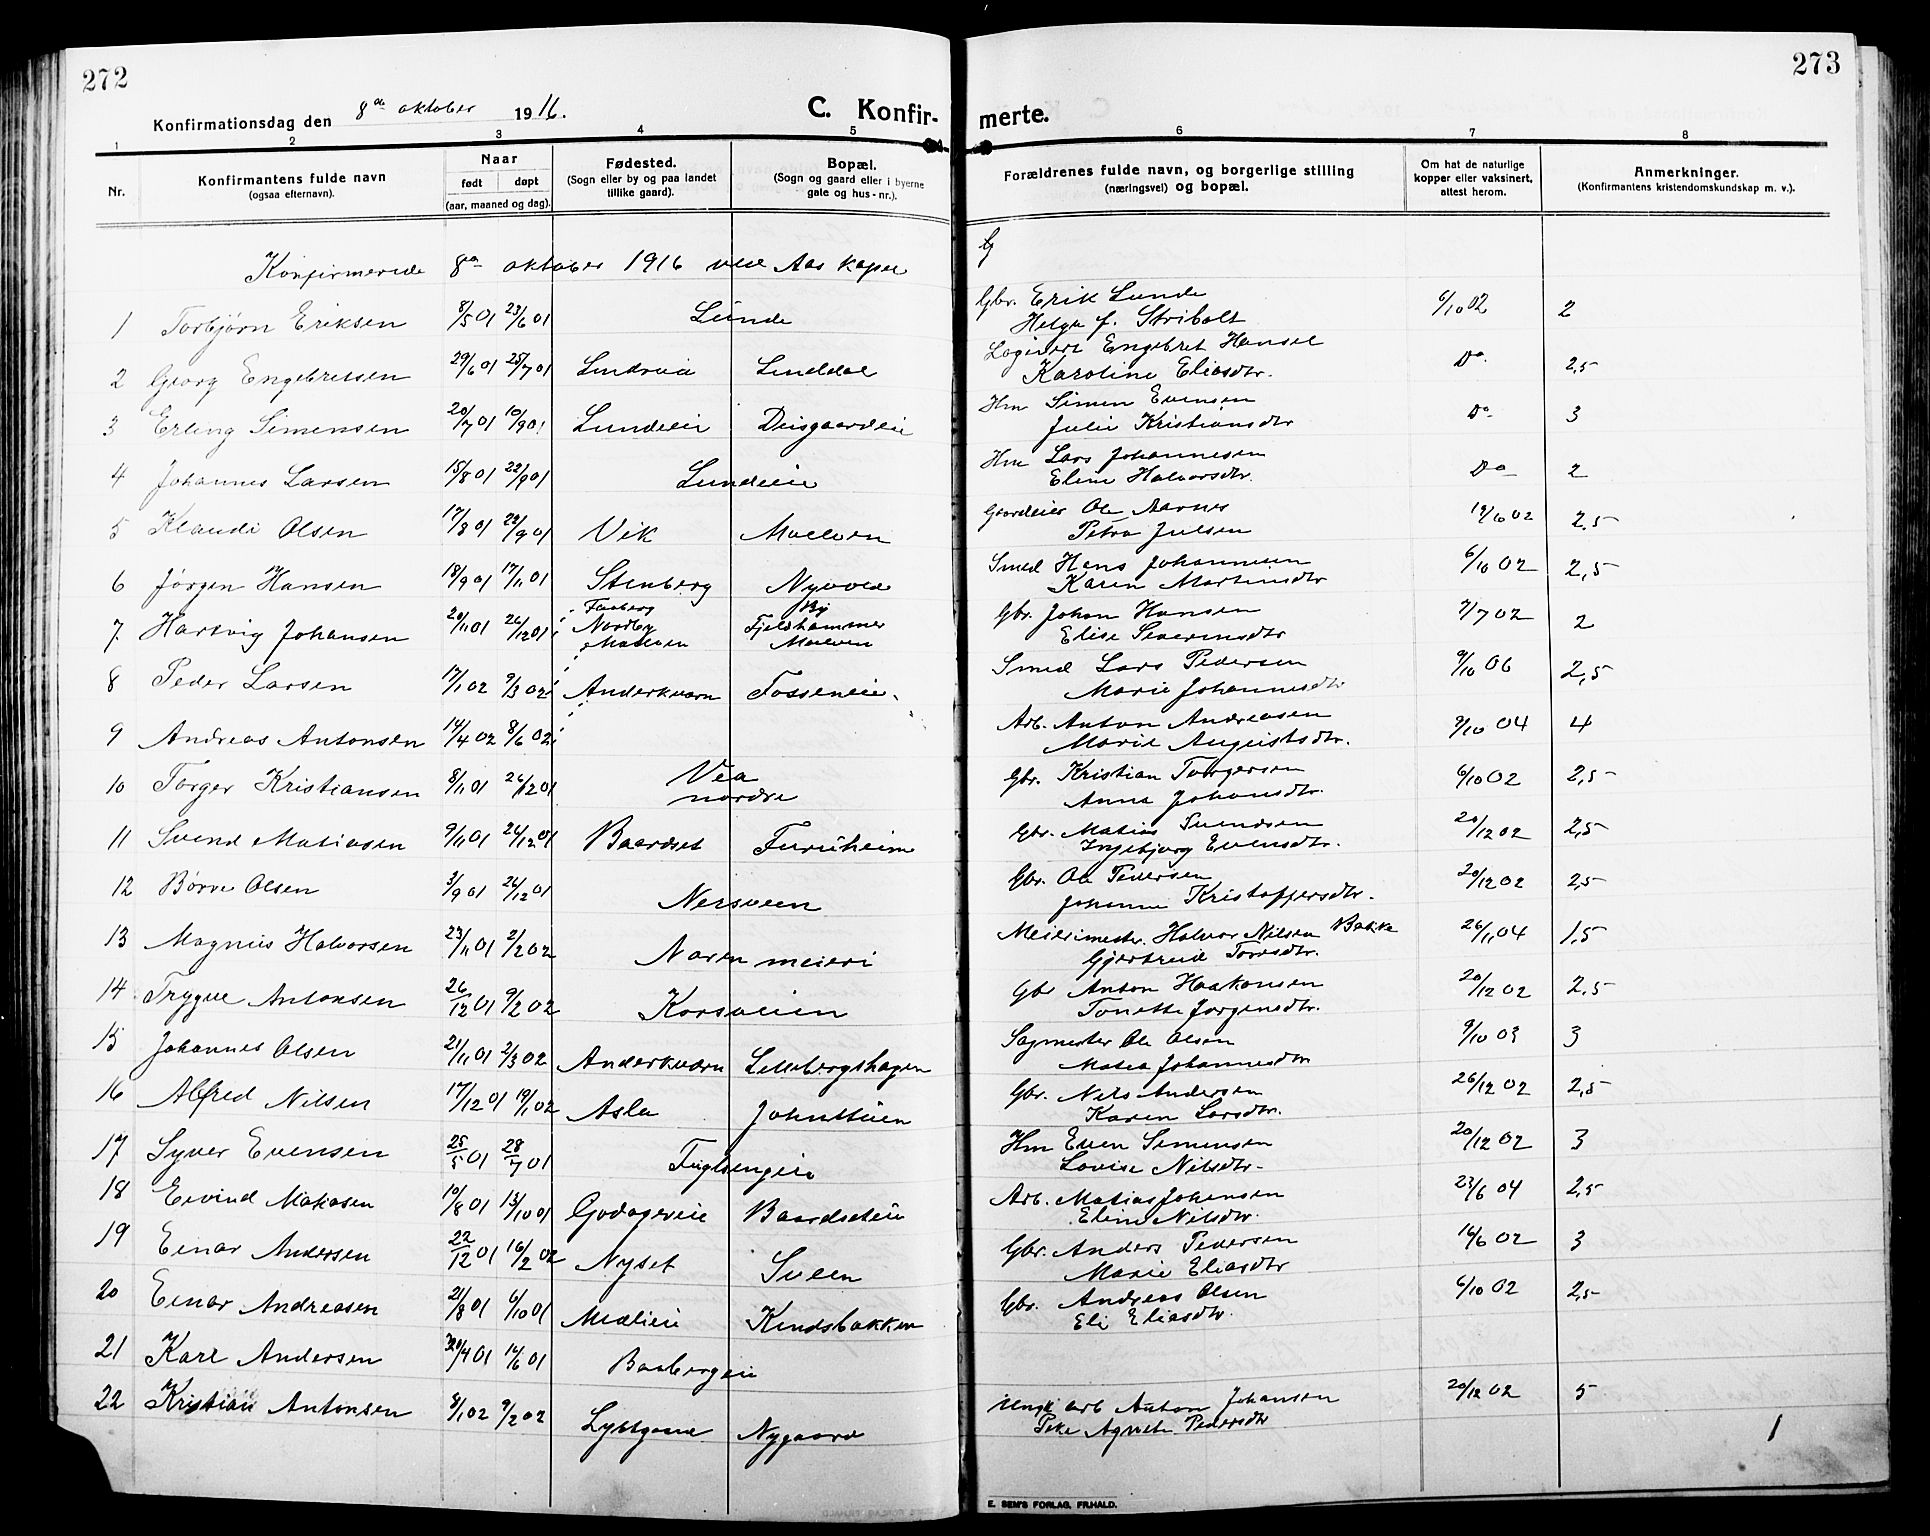 272
273
Konfirmationsdag den 8de oktober 1916.
C. Konfir-
merte.
1 2 3 4 5 6 7 8
Nr.
Konfirmantens fulde navn (ogsaa efternavn).
Naar født døpt (aar, maaned og dag).
Fødested. (Sogn eller by og paa landet tillike gaard).
Bopæl. (Sogn og gaard eller i byerne gate og hus-nr.).
Forældrenes fulde navn, og borgerlige stilling (næringsvei) og bopæl.
Om hat de naturlige kopper eller vaksinert, attest herom.
Anmerkninger. (Konfirmantens kristendomskundskap m. v.).
Konfirmerede 8de oktober 1916 ved Aas kapel
1 Torbjørn Eriksen 8/5 01 23/6 01 Lunde Gbr. Erik Lunde 6/10 02 2
Helga f. Stribolt
2 Georg Engebretsen 29/6 01 25/7 01 Linddal Engebret Hansen Do 2,5
Karoline Eliasdtr.
3 Erling Simensen 20/7 01 10/9 01 Lundeie Diisgaardeie Hm Simen Evensen Do 3
Julie Kristiansdtr
4 Johannes Larsen 15/8 01 22/9 01 Lundeie Hm Lars Johannesen Do 2
Eline Halvorsdtr.
5 Klaudi Olsen 17/8 01 22/9 01 Vik Moelven Gaardeier Ole Aarnes 19/6 02 2,5
Petra Julsen
6 Jørgen Hansen 18/9 01 17/11 01 Stenberg Nyvold Smed Hans Johannesen 6/10 02 2,5
Karen Martinsdtr
7 Hartvig Johansen 20/11 01 26/12 01 Faaberg Nordby Moelven Fjeldhammer Moelven Gbr. Johan Hansen 7/7 02 2
Elise Severinsdtr
8 Peder Larsen 17/1 02 9/3 02 Anderkværn Fosseneie Smed Lars Pedersen 9/10 06 2,5
Marie Johannesdtr
9 Andreas Antonsen 14/4 02 8/6 02 Arb. Anton Andreasen 9/10 04 4
Marie Augustsdtr.
10 Torger Kristiansen 8/11 01 26/12 01 Vea nordre Gbr. Kristian Torgersen 6/10 02 2,5
Anna Johansdtr.
11 Svend Matiasen 9/11 01 26/12 01 Baardset Furuheim Gbr. Matias Svendsen 20/12 02 2,5
Ingebjørg Evensdtr.
12 Børre Olsen 3/9 01 26/12 01 Nersveen Gbr. Ole Pedersen 20/12 02 2,5
Johanne Kristoffersdtr.
13 Magnus Halvorsen 23/11 01 2/2 02 Noren meieri Meierimester. Halvor Nilsen Bakke 26/11 04 1,5
Gjertrud Torsdtr.
14 Trygve Antonsen 26/12 01 9/2 02 Korsveien Gbr Anton Haakonsen 20/12 02 2,5
Tonette Jørgensdtr.
15 Johannes Olsen 21/11 01 2/3 02 Anderkværn Lillebergshagen Sagmester Ole Olsen 9/10 03 3
Matea Johannesdtr
16 Alfred Nilsen 17/12 01 19/1 02 Asla Johnstuen Gbr. Nils Andersen 26/12 02 2,5
Karen Larsdtr.
17 Syver Evensen 25/5 01 28/7 01 Fuglsengeie Hm Even Simensen 20/12 02 3
Lovise Nilsdtr-
18 Eivind Matiasen 10/8 01 13/10 01 Godagereie Baardseteie Arb. Matias Johansen 23/6 04 2,5
Eline Nilsdtr.
19 Einar Andersen 22/12 01 16/2 02 Nyset Sveen Gbr. Anders Pedersen 16/6 02 3
Marie Eliasdtr
20 Einar Andreasen 21/8 01 6/10 01 Melieie Kindsbakken Gbr. Andreas Olsen 6/10 02 2,5
Eli Eliasdtr.
21 Karl Andersen 30/4 01 16/6 01 Baabergeie
22 Kristian Antonsen 8/1 02 9/2 02 Lystgaard Nygaard Ungk arb Anton Johansen 20/12 02 5
Pike Agnete Pedersdtr
1
E. SEM'S FORLAG, FR.HALD.